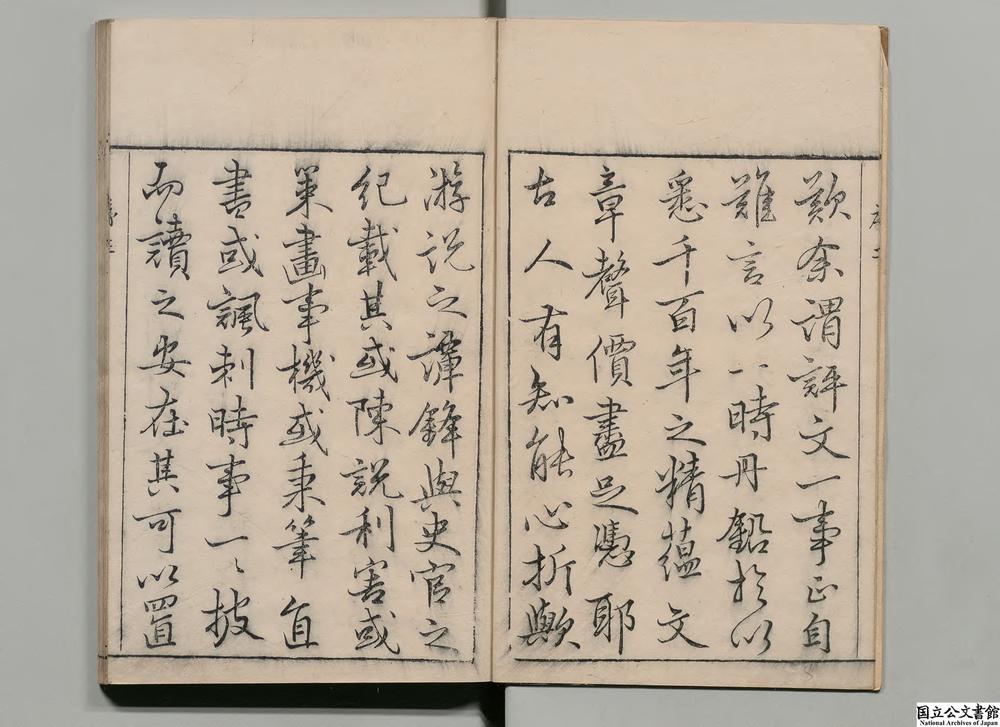 歎余謂評文一事正自
難言以一時丹鉛於以
悉千百年之精蘊文
章聲價盡足憑耶
古人有知能心折歟
游說之譚鋒與史官之
紀載其或陳説利害或
策畫事機或秉筆直
書或諷刺時事一〻披
而讀之安在其可以置
国立公文書館
National Archives of Japan